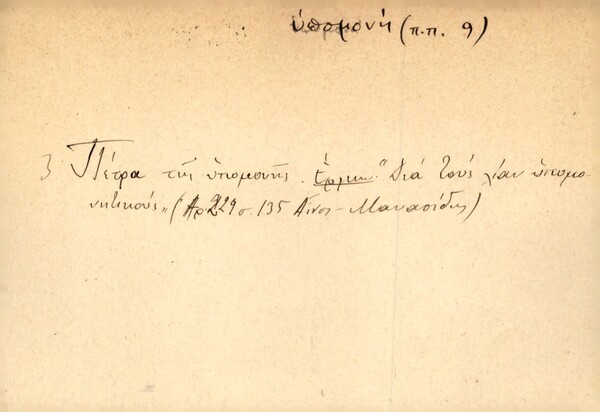 ὑπομονή (π.π. 9)
3 Πέτρα τῆς ὑπομονῆς. Ἑρμην. "Διά τούς λίαν ὑπομο-
νητικούς" (Αρ. 229 σ. 135 Αἶνος - Μανασσίδης)